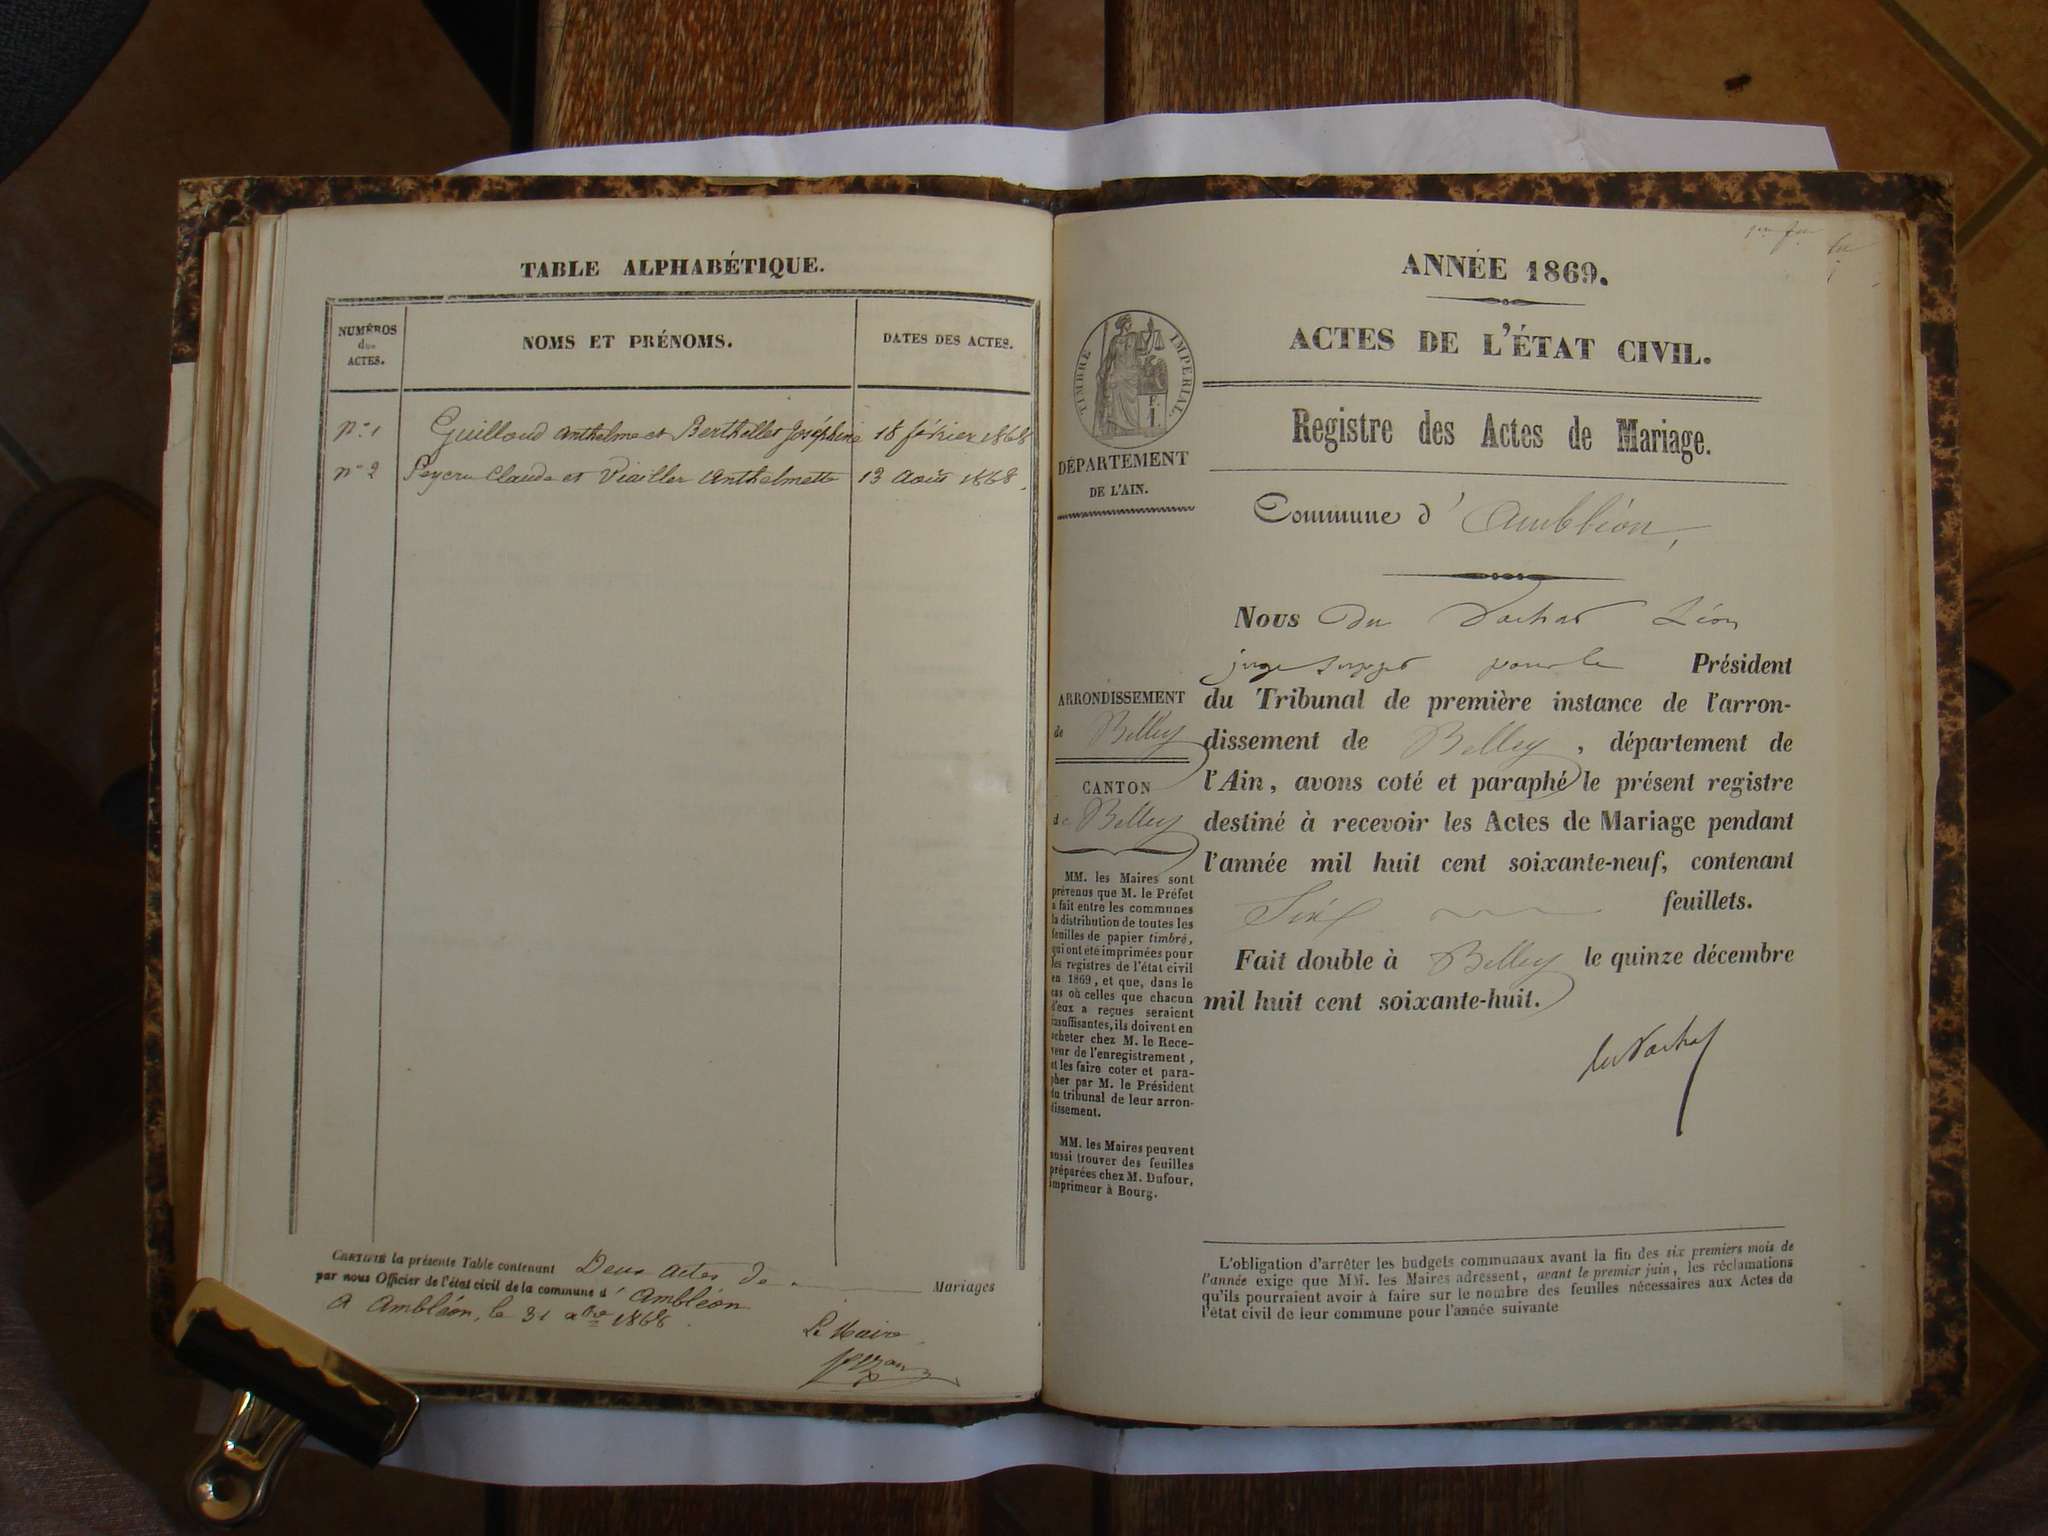 TABLE ALPHABÉTIQUE.
NUMÉROS
des
ACTES.
NOMS ET PRÉNOMS.
DATES DES ACTES.
n° 1 Guilloud Anthelme et Berthellet Joséphine 18 février 1868
n° 2 Peycru Claude et Viailler Anthelmette 13 Août 1868.
CERTIFIÉ la présente Table contenant Deux Actes de Mariages
par nous Officier de l'état civil de la commune d' Ambléon
A Ambléon, le 31 xbre 1868.
Le Maire
ANNÉE 1869.
ACTES DE L'ÉTAT CIVIL.
Registre des Actes de Mariage.
TIMBRE IMPÉRIAL
DÉPARTEMENT
DE L'AIN.
Commune d' Ambléon,
Nous Du Léon
juge pour le Président
du Tribunal de première instance de l'arron-
dissement de Belley, département de
l'Ain, avons coté et paraphé le présent registre
destiné à recevoir les Actes de Mariage pendant
l'année mil huit cent soixante-neuf, contenant
Six feuillets.
Fait double à Belley le quinze décembre
mil huit cent soixante-huit.
ARRONDISSEMENT
de Belley
CANTON
de Belley
MM. les Maires sont
prévenus que M. le Préfet
a fait entre les communes
la distribution de toutes les
feuilles de papier timbré,
qui ont été imprimées pour
les registres de l'état civil
en 1869, et que, dans le
cas où celles que chacun
d'eux a reçues seraient
insuffisantes, ils doivent en
acheter chez M. le Rece-
veur de l'enregistrement,
et les faire coter et para-
pher par M. le Président
du tribunal de leur arron-
dissement.
MM. les Maires peuvent
aussi trouver des feuilles
préparées chez M. Dufour,
imprimeur à Bourg.
L'obligation d'arrêter les budgets communaux avant la fin des six premiers mois de
l'année exige que MM. les Maires adressent, avant le premier juin, les réclamations
qu'ils pourraient avoir à faire sur le nombre des feuilles nécessaires aux Actes de
l'état civil de leur commune pour l'année suivante